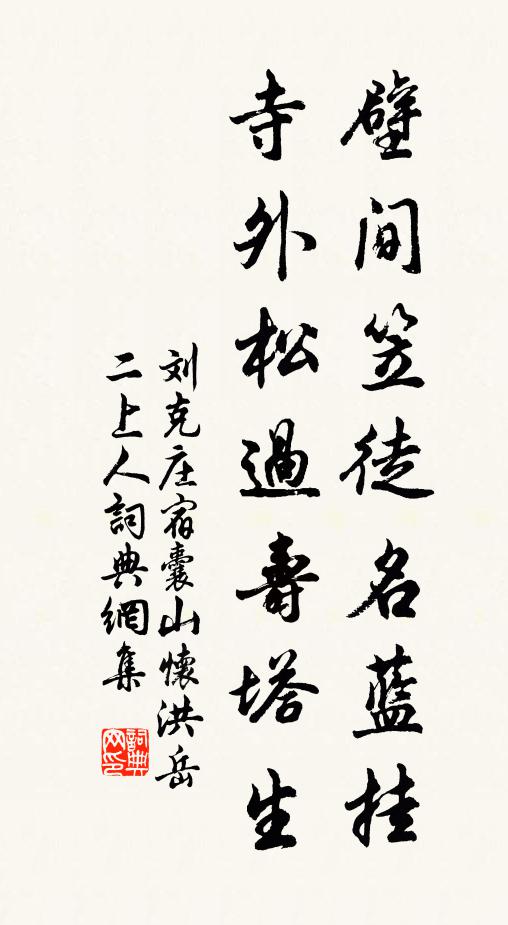 壁间笠徒名蓝挂
寺外松過壽塔生
刘克庄宿囊山懷洪岳
二上人詞典網集
詞典网印